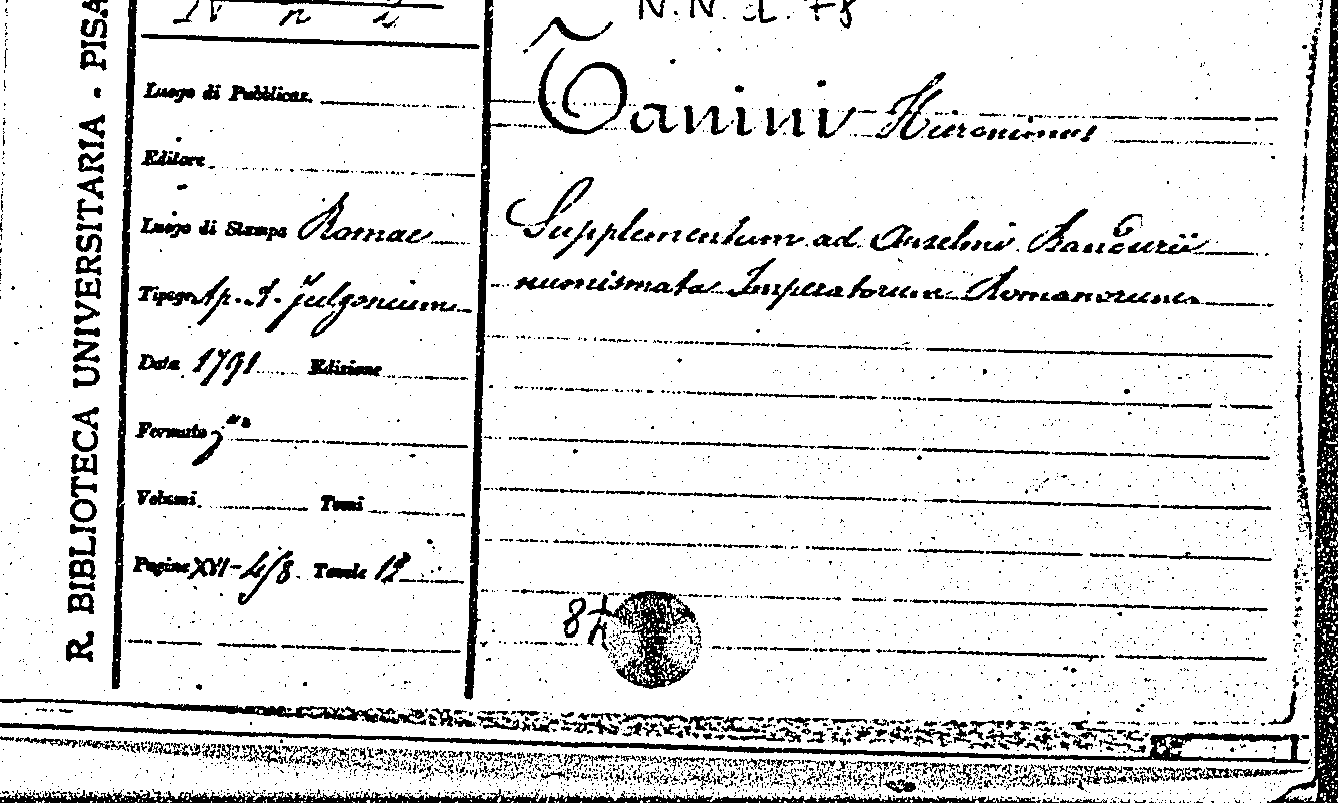 N. N. d. 78
Tanini Hieronimus
Supplementum ad Anselmi Bandurii
numismata Imperatorum Romanorum
R. BIBLIOTECA UNIVERSITARIA - PISA
Luogo di Pubblicaz.
Editore
Luogo di Stampa Romae
Tipogr. Ap. A. Fulgonium
Data 1791 Edizione
Formato
Volumi Tomi
Pagine XVI-4/8 Tavole 12